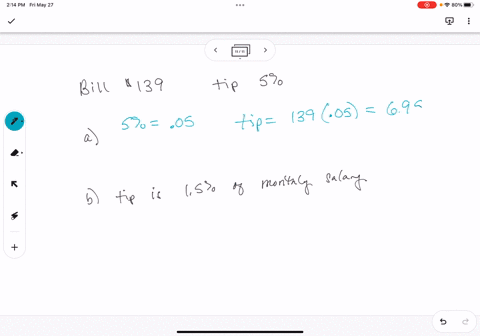 2:14 PM Fri May 27
80%
Bill $139 tip 5%
a) 5% = .05 tip = 139 (.05) = 6.95
b) tip is 1.5% of monthly salary